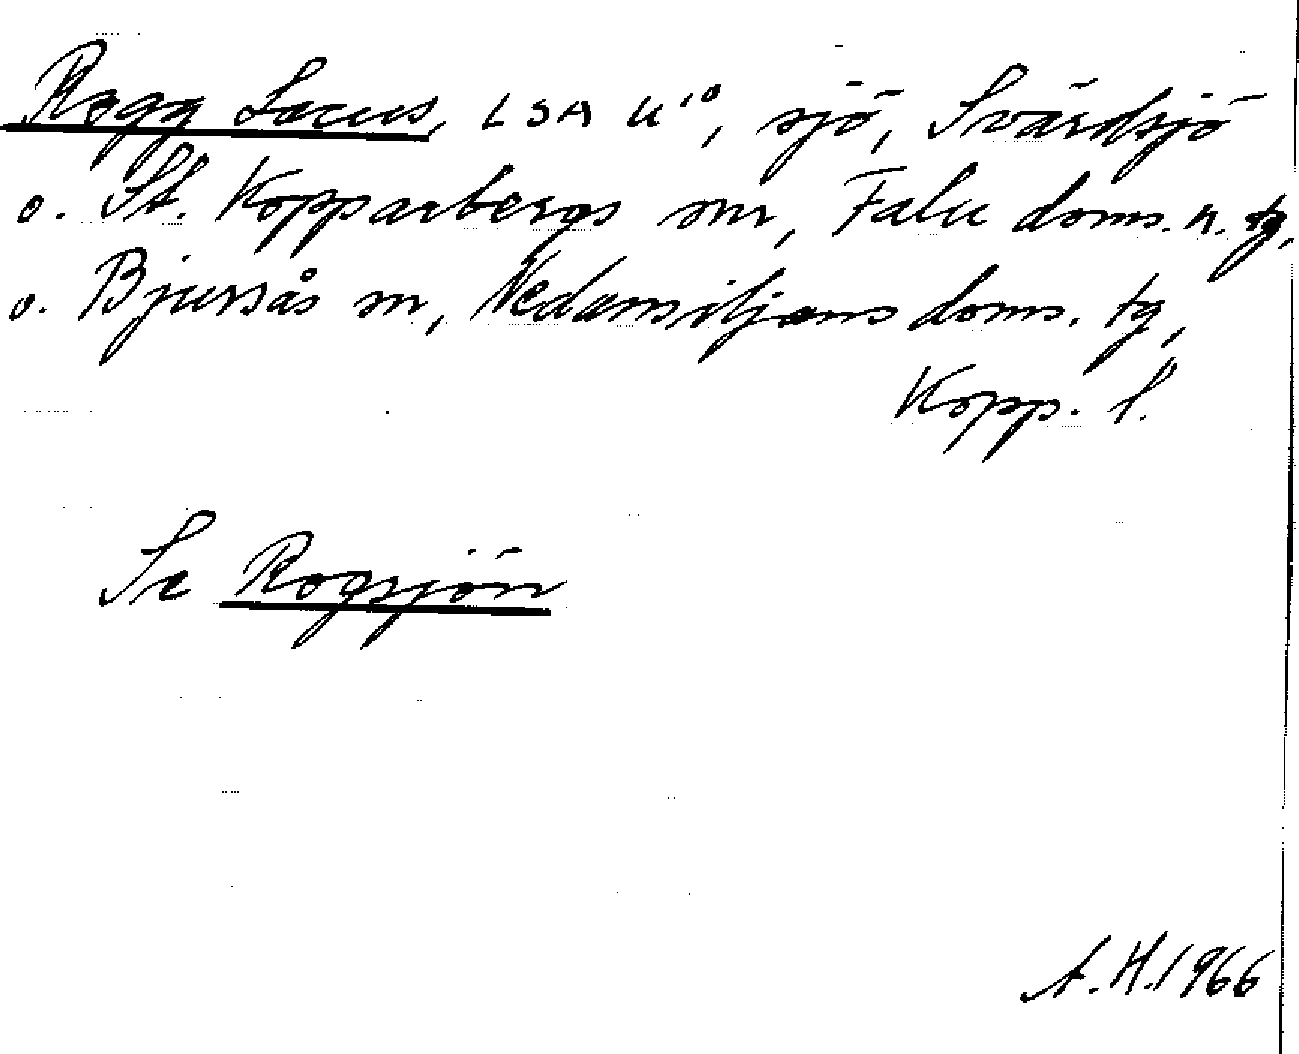 Rogg Lacus, LSA U¹⁰, sjö, Svärdsjö
o. St. Kopparbergs snr, Falu doms. n. tg,
o. Bjursås sn, Nedansiljans doms. tg,
Kopp. l.
Se Rogsjön
A.H. 1966